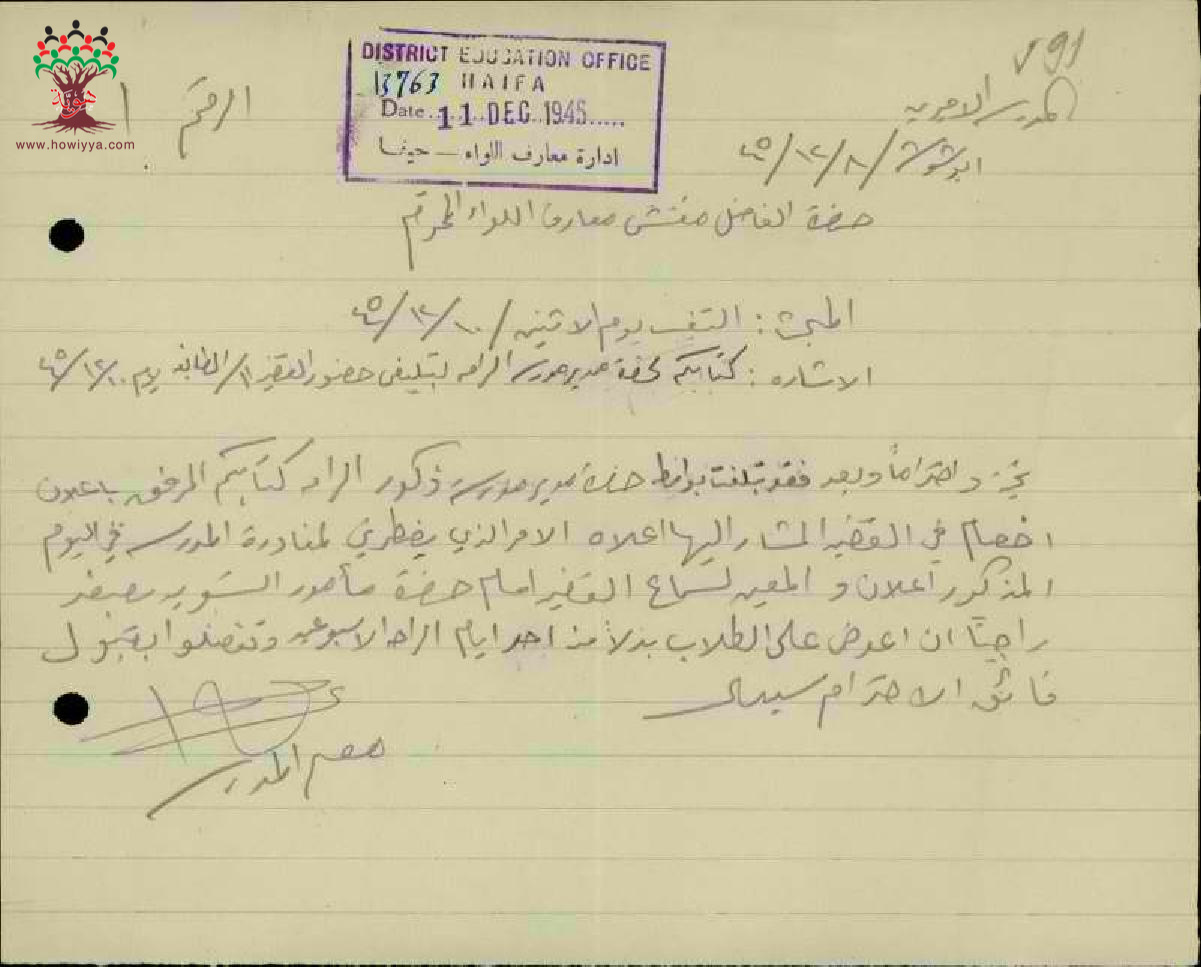 ٧٩١
المدرسة الاميرية
ابو شوشة / ٨ / ١٢ / ٤٥
الرقم ١
DISTRICT EDUCATION OFFICE
13763 HAIFA
Date 11 DEC 1945
ادارة معارف اللواء — حيفا
هوية
www.howiyya.com
حضرة الفاضل مفتش معارف اللواء المحترم
المبحث : التغيب يوم الاثنين / ١٠ / ١٢ / ٤٥
الاشاره : كتابكم لحضرة مدير مدرسة الرامه لتبليغي حضور القضية يوم ١٠ / ١٢ / ٤٥
تحية واحتراماً وبعد فقد تبلغت بواسطة حضرة مدير مدرسة ذكور الرامه كتابكم المرفق باعلان
اخصام في القضية المشار اليها اعلاه الامر الذي يضطرني لمغادرة المدرسة في اليوم
المذكور اعلان و المعين لسماع القضية امام حضرة مأمور التسوية بصفد
راجيًا ان اعوض على الطلاب بدلاً من احد ايام الراحه الاسبوعيه وتفضلوا بقبول
فائق الاحترام سيدي
معلم المدرسة